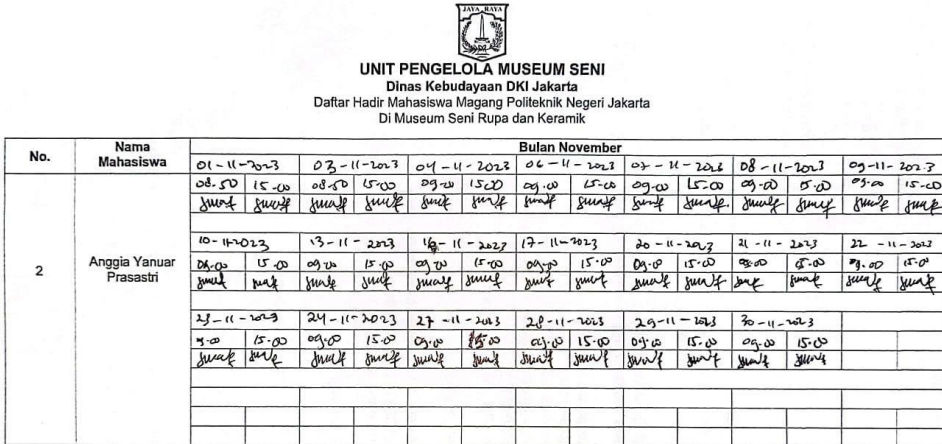 JAYA RAYA
UNIT PENGELOLA MUSEUM SENI
Dinas Kebudayaan DKI Jakarta
Daftar Hadir Mahasiswa Magang Politeknik Negeri Jakarta
Di Museum Seni Rupa dan Keramik
No. Nama Mahasiswa Bulan November
01-11-2023 03-11-2023 04-11-2023 06-11-2023 07-11-2023 08-11-2023 09-11-2023
08.50 15.00 08.50 15.00 09.00 15.00 09.00 15.00 09.00 15.00 09.00 15.00 09.00 15.00
10-11-2023 13-11-2023 11-2023 17-11-2023 20-11-2023 21-11-2023 22-11-2023
2 Anggia Yanuar Prasastri
09.00 15.00 09.00 15.00 09.00 15.00 09.00 15.00 09.00 15.00 09.00 15.00 09.00 15.00
23-11-2023 24-11-2023 27-11-2023 28-11-2023 29-11-2023 30-11-2023
9.00 15.00 09.00 15.00 09.00 15.00 09.00 15.00 09.00 15.00 09.00 15.00